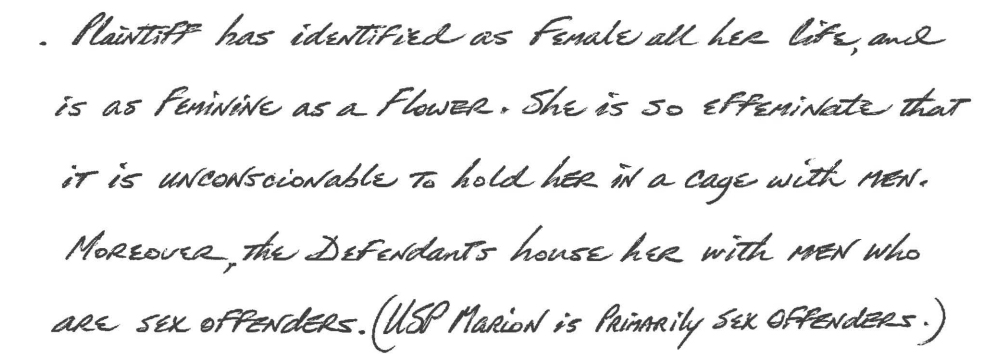 . Plaintiff has identified as female all her life, and
is as feminine as a flower. She is so effeminate that
it is unconscionable to hold her in a cage with men.
Moreover, the Defendants house her with men who
are sex offenders. (USP Marion is primarily sex offenders.)